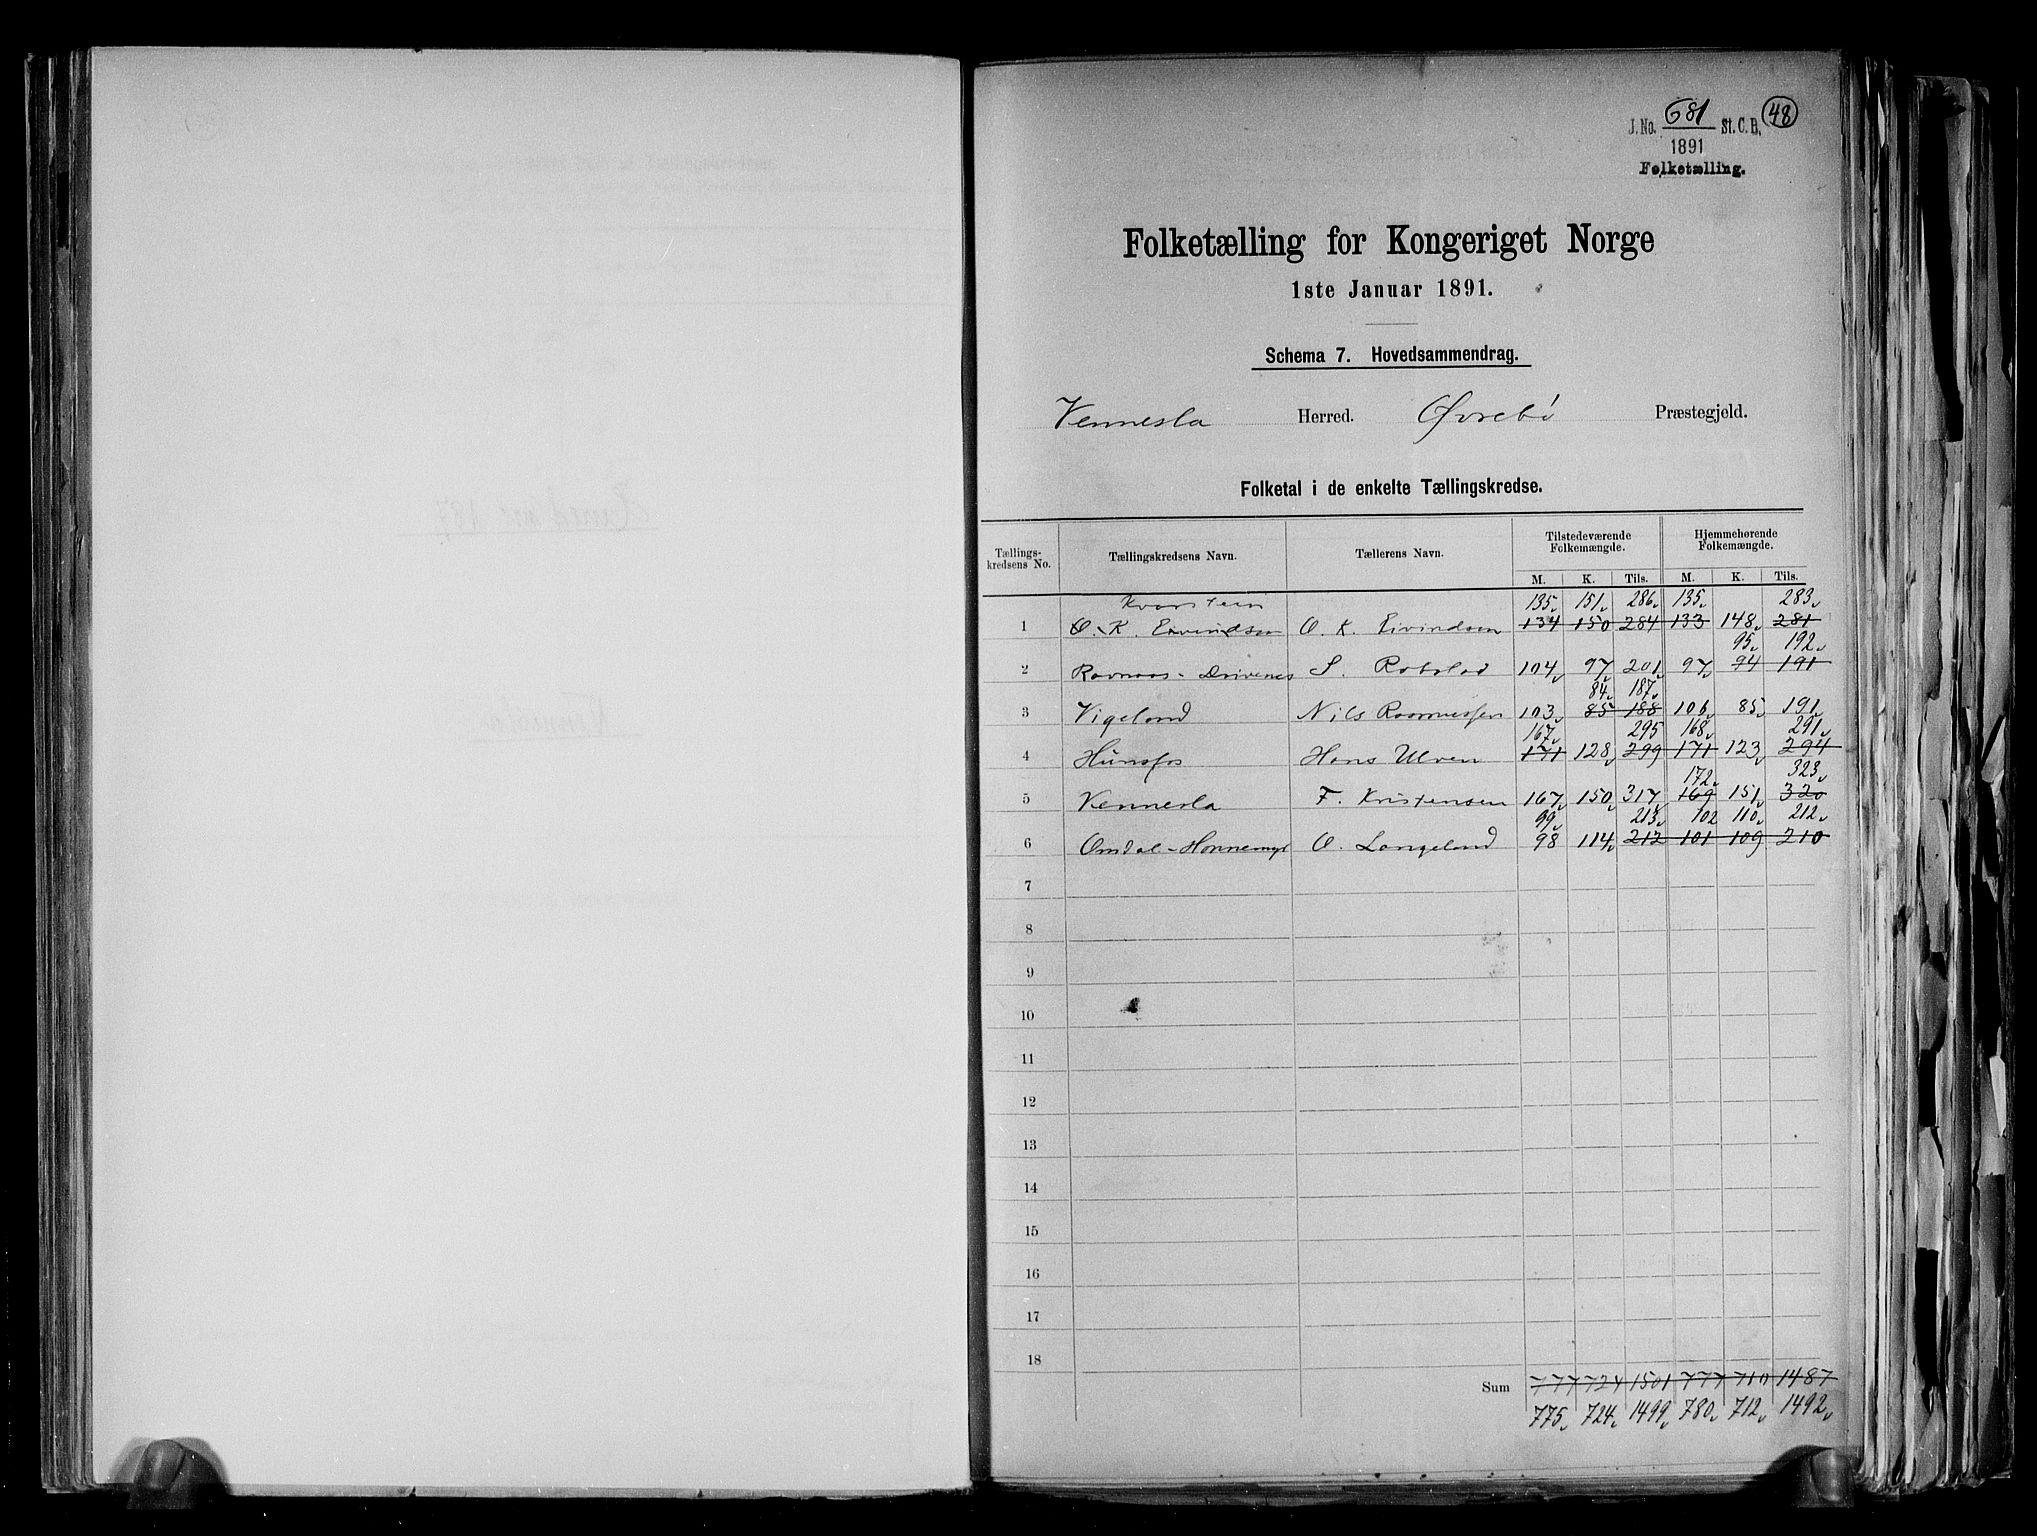 J. No. 681 St. C. B. 48
1891
Folketælling.
Folketælling for Kongeriget Norge
1ste Januar 1891.
Schema 7. Hovedsammendrag.
Vennesla Herred. Øvrebø Præstegjeld.
Folketal i de enkelte Tællingskredse.
Tællings-kredsens No. Tællingskredsens Navn. Tællerens Navn. Tilstedeværende Folkemængde. Hjemmehørende Folkemængde.
M. K. Tils. M. K. Tils.
Kvarstein 135 151 286 135 283
1 O. K. Eivindsen O. K. Eivindsen 134 150 284 133 148 281
95 192
2 Ravnaas - Drivenes S. Robstad 104 97 201 97 94 191
84 187
3 Vigeland Nils Rasmussen 103 85 188 106 85 191
167 295 168 291
4 Hunsfos Hans Ulven 171 128 299 171 123 294
172 323
5 Vennesla F. Kristensen 167 150 317 169 151 320
99 213 102 110 212
6 Omdal - Honnemyr O. Langeland 98 114 212 101 109 210
7
8
9
10
11
12
13
14
15
16
17
18
Sum 777 724 1501 777 710 1487
775 724 1499 780 712 1492